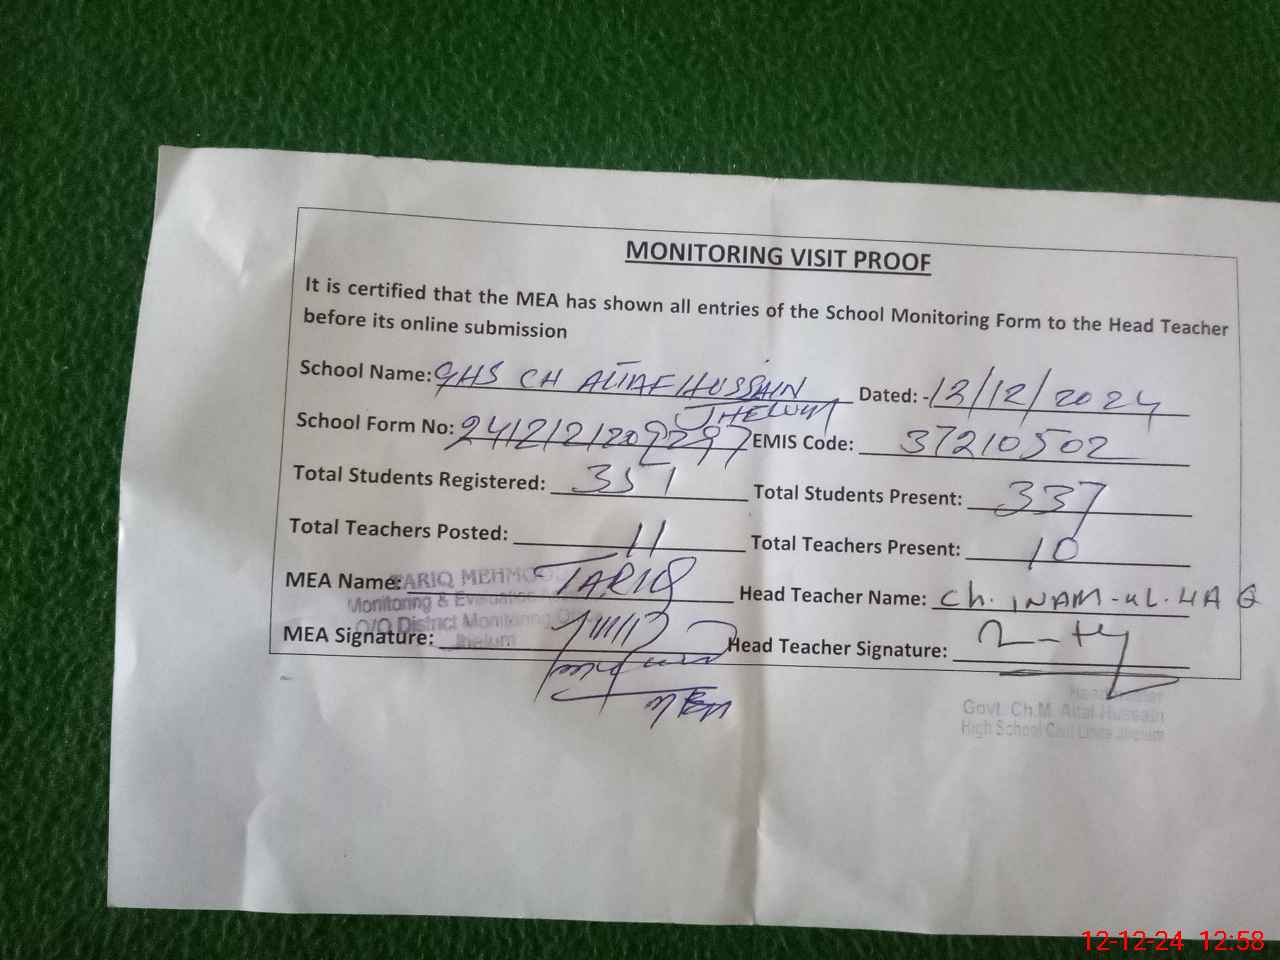 MONITORING VISIT PROOF
It is certified that the MEA has shown all entries of the School Monitoring Form to the Head Teacher
before its online submission
School Name: GHS CH ALTAF HUSSAIN Dated: - 12/12/2024
JHELUM
School Form No: EMIS Code: 37210502
Total Students Registered: 351 Total Students Present: 337
Total Teachers Posted: 11 Total Teachers Present: 10
MEA Name: TARIQ Head Teacher Name: Ch. INAM-UL-HAQ
TARIQ MEHMOOD
Monitoring & Evaluation
O/O District Monitoring Office
Jhelum
MEA Signature: Head Teacher Signature:
MEA
Head Master
Govt. Ch.M. Altaf Hussain
High School Civil Lines Jhelum
12-12-24 12:58